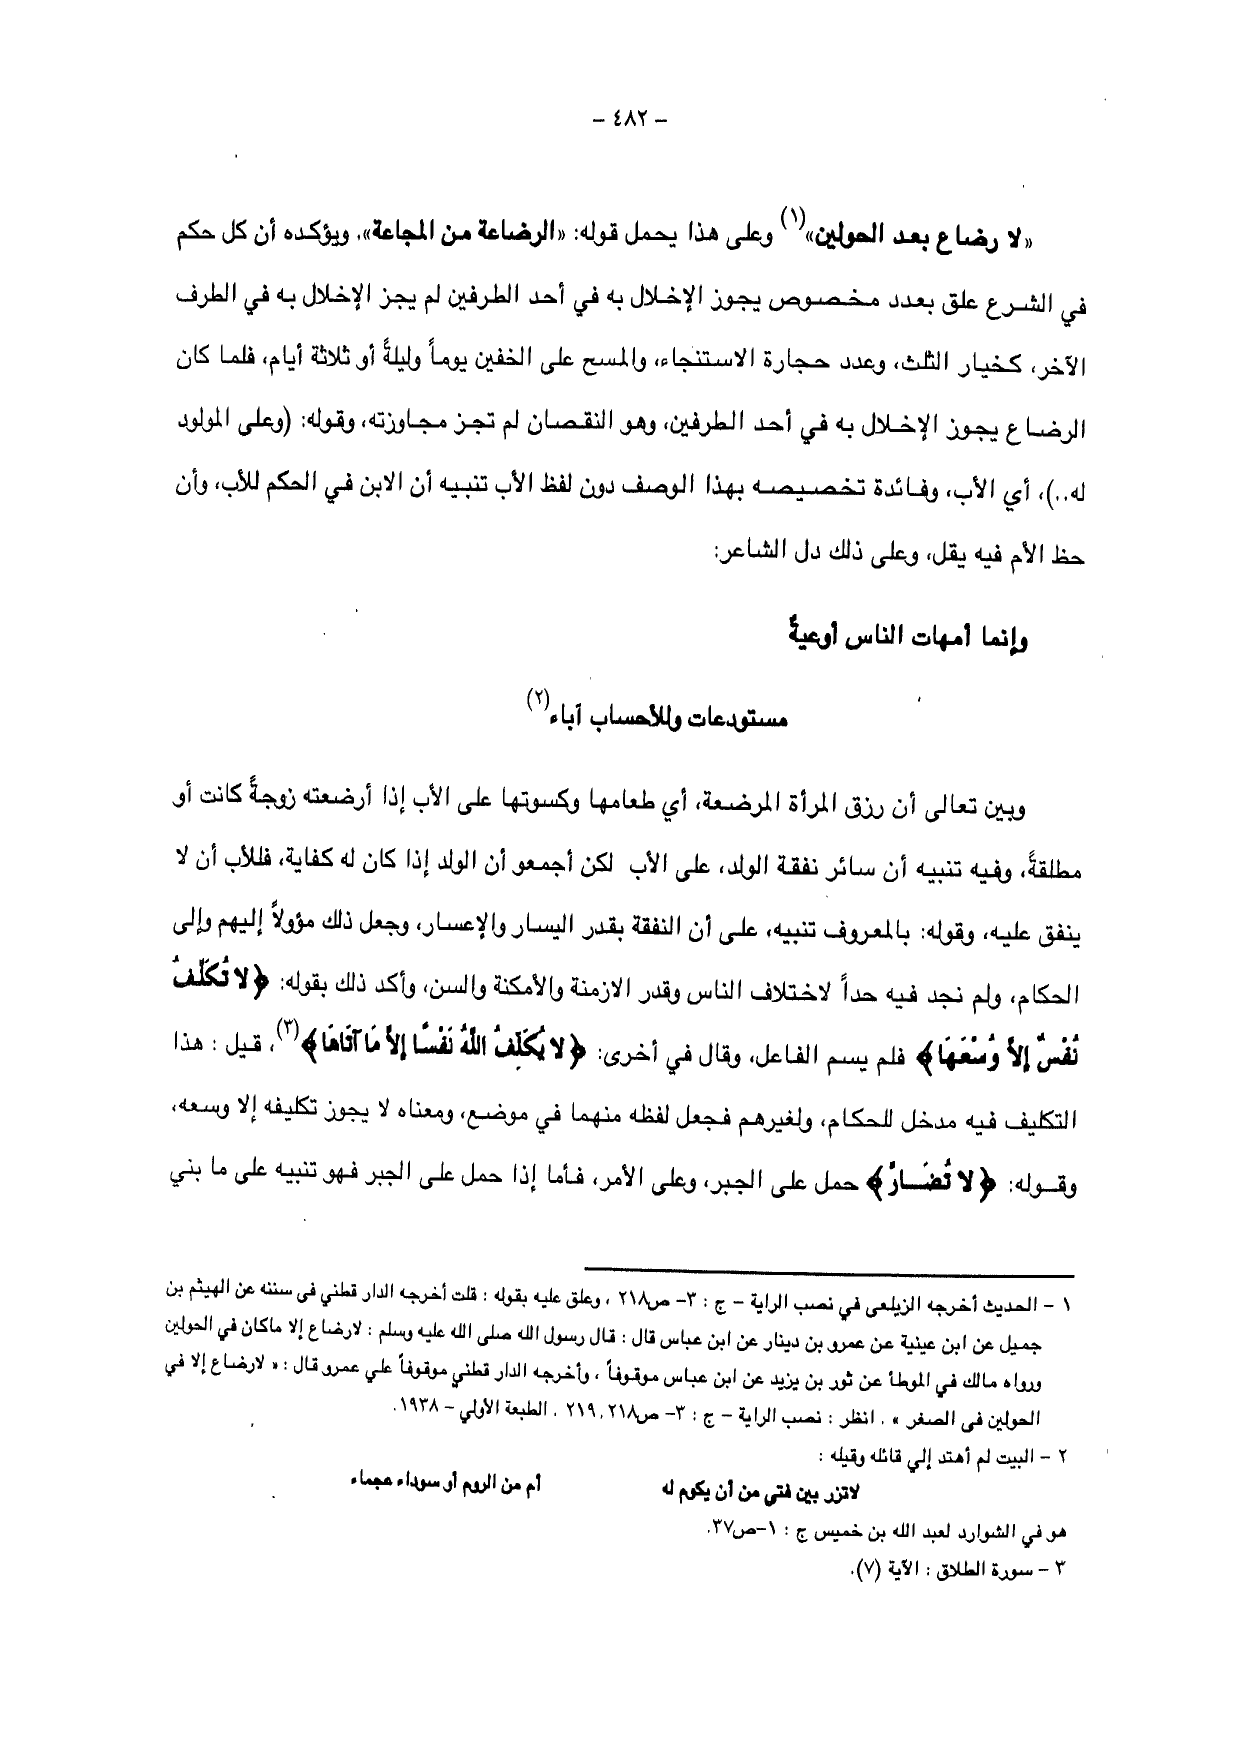 - ٤٨٢ -
«لا رضاع بعد الحولين»(١) وعلى هذا يحمل قوله: «الرضاعة من المجاعة». ويؤكده أن كل حكم
في الشرع علق بعدد مخصوص يجوز الإخلال به في أحد الطرفين لم يجز الإخلال به في الطرف
الآخر، كخيار الثلث، وعدد حجارة الاستنجاء، والمسح على الخفين يوماً وليلةً أو ثلاثة أيام، فلما كان
الرضاع يجوز الإخلال به في أحد الطرفين، وهو النقصان لم تجز مجاوزته، وقوله: (وعلى المولود
له..)، أي الأب، وفائدة تخصيصه بهذا الوصف دون لفظ الأب تنبيه أن الابن في الحكم للأب، وأن
حظ الأم فيه يقل، وعلى ذلك دل الشاعر:
وإنما أمهات الناس أوعيةً
مستودعات وللأحساب آباء(٢)
وبين تعالى أن رزق المرأة المرضعة، أي طعامها وكسوتها على الأب إذا أرضعته زوجةً كانت أو
مطلقةً، وفيه تنبيه أن سائر نفقة الولد، على الأب لكن أجمعو أن الولد إذا كان له كفاية، فللأب أن لا
ينفق عليه، وقوله: بالمعروف تنبيه، على أن النفقة بقدر اليسار والإعسار، وجعل ذلك مؤولاً إليهم وإلى
الحكام، ولم نجد فيه حداً لاختلاف الناس وقدر الازمنة والأمكنة والسن، وأكد ذلك بقوله: ﴿لا تُكَلَّفُ
نُفْسٌ إِلاَّ وُسْعَهَا﴾ فلم يسم الفاعل، وقال في أخرى: ﴿لا يُكَلِّفُ اللَّهُ نَفْسًا إِلاَّ مَا آتَاهَا﴾(٣)، قيل : هذا
التكليف فيه مدخل للحكام، ولغيرهم فجعل لفظه منهما في موضع، ومعناه لا يجوز تكليفه إلا وسعه،
وقوله: ﴿لا تُضَارَّ﴾ حمل على الجبر، وعلى الأمر، فأما إذا حمل على الجبر فهو تنبيه على ما بني
١ - الحديث أخرجه الزيلعي في نصب الراية - ج : ٣- ص٢١٨ ، وعلق عليه بقوله : قلت أخرجه الدار قطني في سننه عن الهيثم بن
جميل عن ابن عينية عن عمرو بن دينار عن ابن عباس قال : قال رسول الله صلى الله عليه وسلم : لارضاع إلا ماكان في الحولين
ورواه مالك في الموطأ عن ثور بن يزيد عن ابن عباس موقوفاً ، وأخرجه الدار قطني موقوفاً علي عمرو قال : « لارضاع إلا في
الحولين في الصغر » . انظر : نصب الراية - ج : ٣- ص٢١٨، ٢١٩ . الطبعة الأولي - ١٩٣٨.
٢ - البيت لم أهتد إلي قائله وقبله :
لاتزر بين فتى من أن يكوم له أم من الروم أو سوداء عجماء
هو في الشوارد لعبد الله بن خميس ج : ١-ص٣٧.
٣ - سورة الطلاق : الآية (٧).